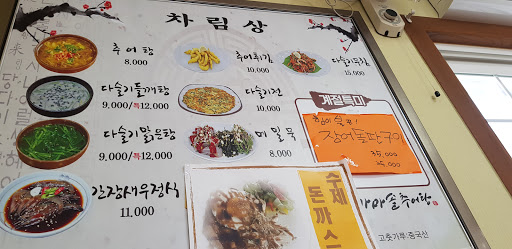 차림상
추어탕
8,000
추어튀김
10,000
다슬기무침
15,000
다슬기들깨탕
9,000/특12,000
다슬기전
10,000
다슬기맑은탕
9,000/특12,000
메밀묵
8,000
간장새우정식
11,000
계절특미
장어돌판구이
35,000
수제
돈까스
가마솥추어탕
고춧가루:중국산